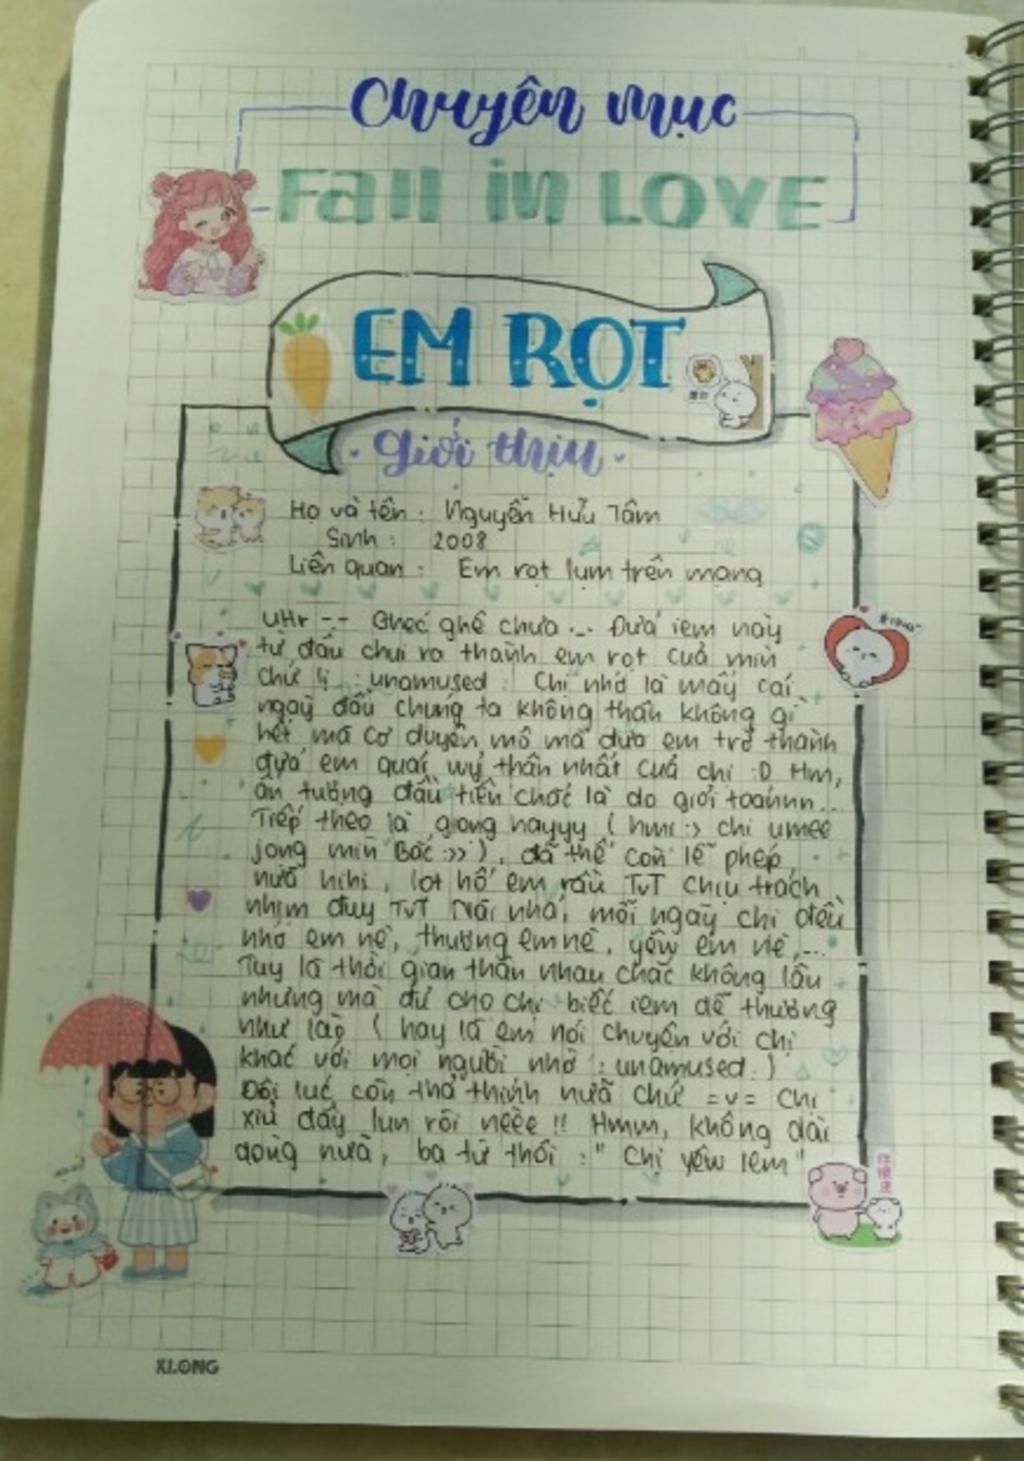 Chuyên mục
Fall in LOVE
EM RỌT
giới thịu
Họ và tên : Nguyễn Hữu Tâm
Sinh : 2008
Liên quan : Em rọt lụm trên mạng
UHr -- Ghéc ghê chưa ... Đứa iem này
từ đâu chui ra thành em rọt của mìn
chứ lị :unamused: Chị nhớ là mấy cái
ngày đầu chúng ta không thân không gì
hết mà cơ duyên mô mà đưa em trở thành
đứa em quái wỷ thân nhất của chị :D Hm,
ấn tượng đầu tiên chắc là do giới toànnn...
Tiếp theo là giọng nayyy ( hmi :> chị umee
jọng mìn Bắc :>> ), đã thế còn lễ phép
nữa hihi, lọt hố em rầu TvT Chịu trách
nhịm đuy TvT Nói nhá, mỗi ngày chị đều
nhớ em nè, thương em nè, yêw em nè,...
Tuy là thời gian thân nhau chắc không lâu
nhưng mà đủ cho chị biết iem dễ thương
như lào ( hay là em nói chuyện với chị
khác với mọi người nhở :unamused: )
Đôi lúc còn thả thính nữa chứ =v= Chị
xỉu đấy lun rồi nèèè !! Hmm, không dài
dòng nữa, ba từ thôi : " Chị yêw iem "
XI.ONG